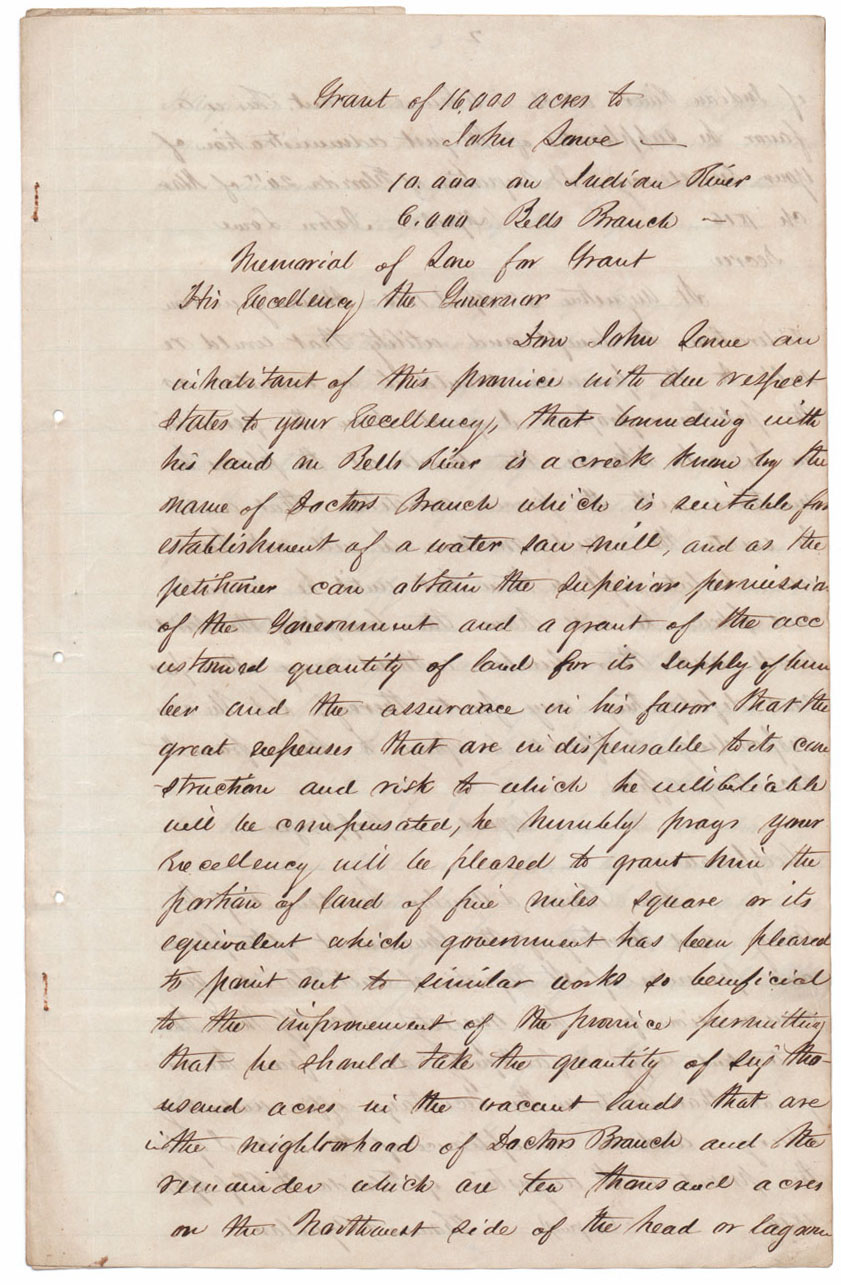 Grant of 16,000 acres to
John Lowe —
10.000 on Indian River
6.000 Bells Branch —
Memorial of Low for Grant
His Excellency the Governor
Don John Lowe an
inhabitant of this province with due respect
states to your Excellency, that bounding with
his land on Bells River is a creek know by the
name of Doctors Branch which is suitable for
establishment of a water saw mill, and as the
petitioner can obtain the superior permission
of the Government and a grant of the acc
ustomed quantity of land for its supply of tim
ber and the assurance in his favor that the
great expenses that are indispensable to its con
struction and risk to which he will be liable
will be compensated, he humbly prays your
Excellency will be pleased to grant him the
portion of land of five miles square or its
equivalent which government has been pleased
to point out to similar works so beneficial
to the improvement of the province permitting
that he should take the quantity of six tho-
usand acres in the vacant lands that are
in the neighborhood of Doctors Branch and the
remainder which are ten thousand acres
on the Northwest side of the head or lagoon